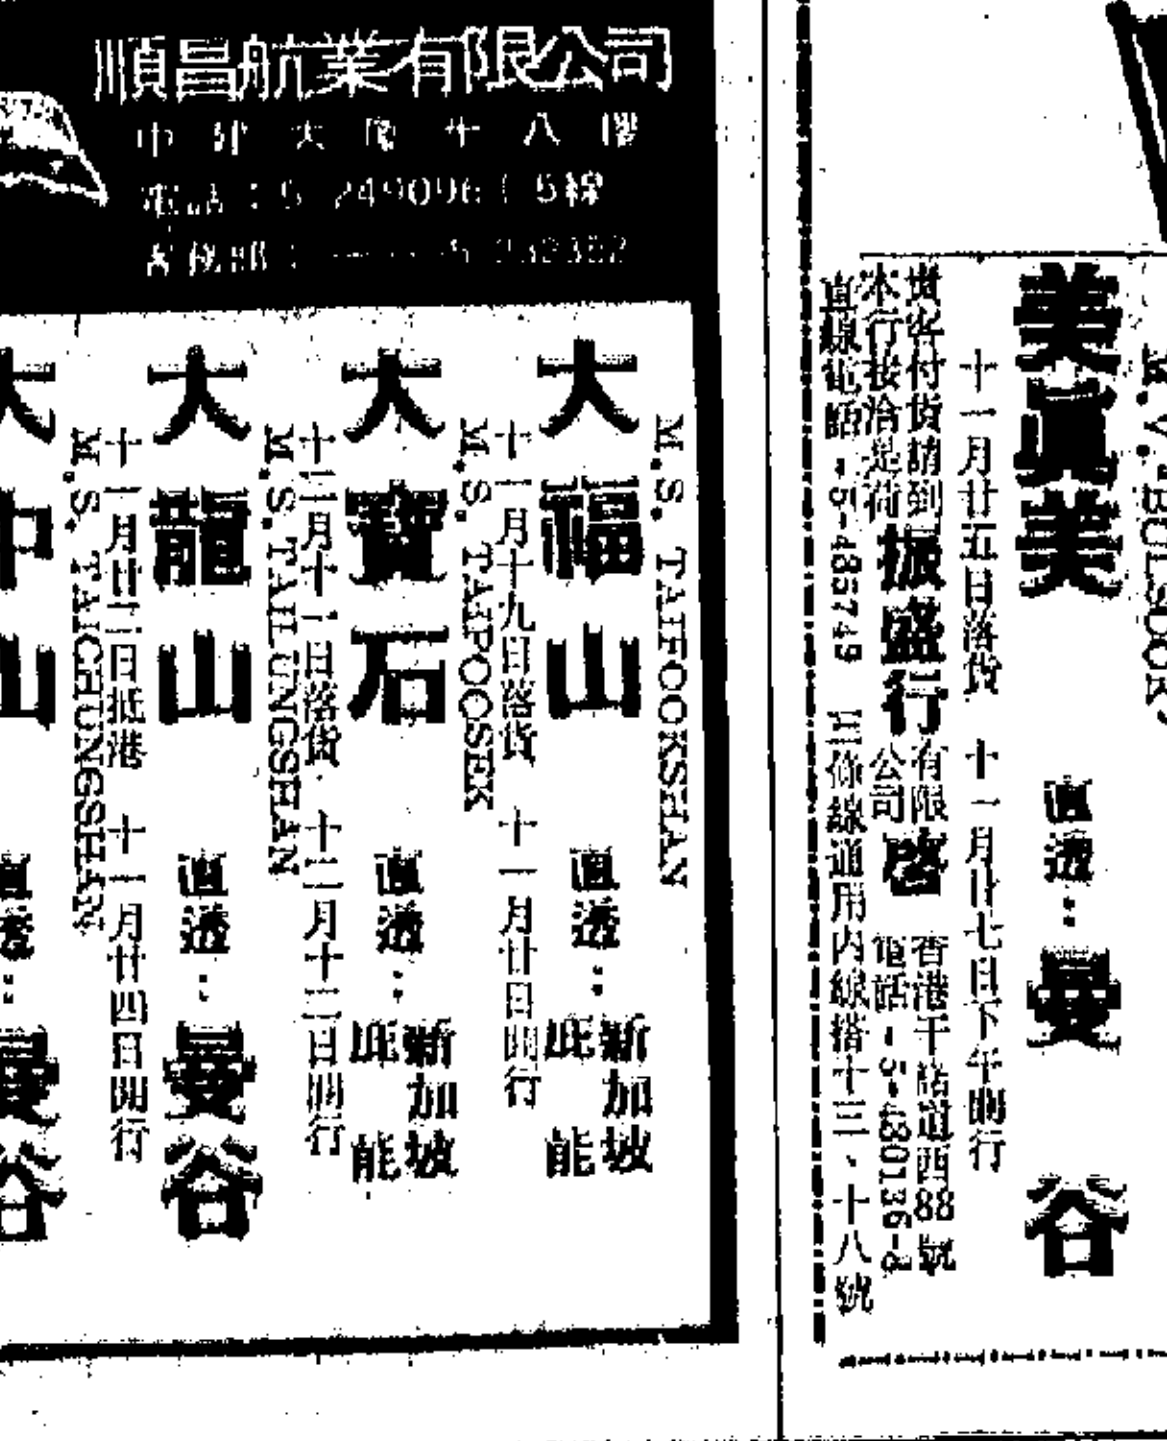 順昌航業有限公司
中建大廈十八樓
電話：5-249096（5線
M.S. TAIFOOKSHAN
大福山 直透：新加坡 庇能
十一月十九日落貨 十一月廿日開行
M.S. TAIPOOSEK
大寶石 直透：新加坡 庇能
十二月十一日落貨 十二月十二日開行
M.S. TAILUNGSHAN
大龍山 直透：曼谷
十一月廿三日抵港 十一月廿四日開行
M.S. TAICHUNGSHAN
大中山 直透：曼谷
美眞美 直透：曼谷
十一月廿五日落貨 十一月廿七日下午開行
貴客付貨請到
本行接洽是荷
振盛行有限公司啓
香港干諾道西88號
電話-5-480136-8
直線電話-5-485749 四條線通用內線搭十三、十八號